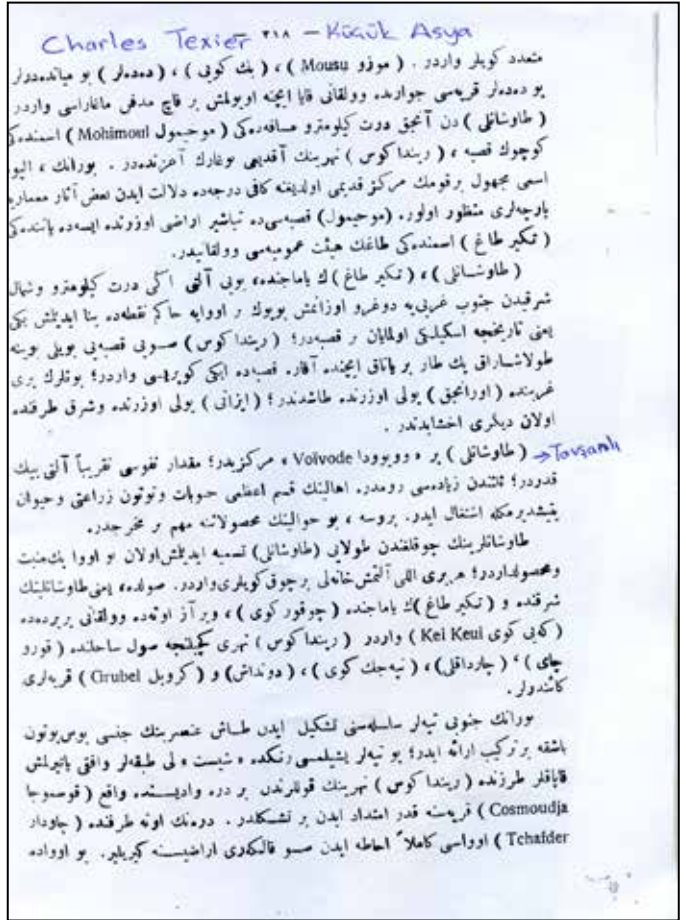 Charles Texier – ٣١٨ – Küçük Asya
متعدد كويلر واردر . ( موزو Mousu ) ، ( بك كوبى ) ، ( دده‌لر ) بو میانده‌دولر
بو دده‌لر قریه‌سى جوارنده وولقانى قایا ایچنه اویولمش بر قاچ مدفن مغاراسى واردر
( طاوشانلى ) دن آنجق درت كیلومترو مسافه‌ده‌كى ( موحیمول Mohimoul ) اسمنده‌كى
كوچوك قصبه ، ( ریندا كوس ) نهرینك آقدیغى بوغازك آغزنده‌در . بورانك ، الیوم
اسمى مجهول بر قومك مركز قدیمى اولدیغنه كافى درجه‌ده دلالت ایدن بعض آثار معماریه
پارچه‌لرى منظور اولور. (موحیمول) قصبه‌سى‌ده تباشیر اراضى اوزرنده ایسه‌ده یاننده‌كى
( تكیر طاغ ) اسمنده‌كى طاغك هیئت عمومیه‌سى وولقانیدر.
( طاوشانلى ) ، ( تكیر طاغ ) ك یاماجنده، بویى آلتى اكى درت كیلومترو وشمال
شرقیدن جنوب غربى‌یه دوغرو اوزانمش بویوك بر اووایه حاكم نقطه‌ده بنا ایدیلمش یكى
یعنى تاریخجه اسكیلكى اولمایان بر قصبه‌در؛ ( ریندا كوس ) صویى قصبه‌یى بویلى بوینه
طولاشاراق پك طار بر یاتاق ایچنده آقار. قصبه‌ده ایكى كوپریسى واردر؛ بونلرك برى
غربنده ( اورانجق ) یولى اوزرنده طاشدندر؛ ( ایزانى ) یولى اوزرنده وشرق طرفنده
اولان دیگرى اخشابدندر .
( طاوشانلى ) بر « وویوودا Voïvode » مركزیدر؛ مقدار نفوسى تقریباً آلتى بیك → Tavşanlı
قدردر؛ ثلثندن زیاده‌سى رومدر. اهالینك قسم اعظمى حبوبات وتوتون زراعتى وحیوان
یتیشدیرمكله اشتغال ایدر. بروسه ، بو حوالینك محصولاتنه مهم بر مخرجدر.
طاوشانلرینك چوقلغندن طولایى (طاوشانلى) تسمیه ایدیلمش اولان بو اووا پك منبت
ومحصولداردر؛ هر برى اللى آلتمش خانه‌لى بر چوق كویلرى واردر. صولده، یعنى طاوشانلینك
شرقنده و ( تكیر طاغ )ك یاماجنده ( چوقور كوى ) ، وبر آز اوته‌ده وولقانى بر یرده‌ده
( كه‌یى كوى Kei Keul ) واردر ( ریندا كوس ) نهرى كچیلنجه صول ساحلنده ( قورو
چاى ) ، ( چارداقلى) ، ( تپه‌جك كوى ) ، ( دونداش) و ( كروبل Grubel ) قریه‌لرى
كائندرلر .
بورانك جنوبى تپه‌لر سلسله‌سنى تشكیل ایدن طاش عنصرینك جنسى بوس‌بوتون
باشقه بر تركیب ارائه ایدر؛ بو تپه‌لر یشیلمسى رنكده « شیست » لى طبقه‌لر واقتى یاتیرلمش
قاپاقلر طرزنده ( ریندا كوس ) نهرینك قوللرندن بر دره وادیسنده واقع ( قوسموجا
Cosmoudja ) قریه‌سنه قدر امتداد ایدن بر تشكلدر . دره‌نك اوته طرفنده ( چاودار
Tchafder ) اوواسى كاملاً احاطه ایدن صو قالكرى اراضیسنه كیریلیر. بو اوواده